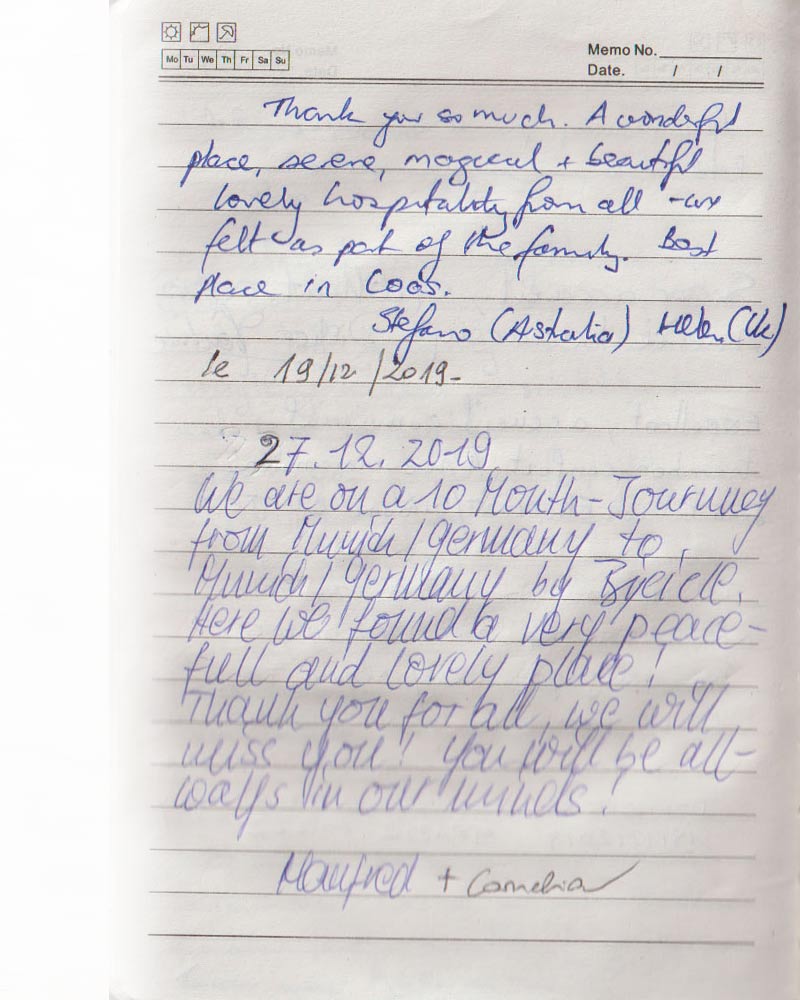 Mo Tu We Th Fr Sa Su
Memo No.
Date. / /
Thank you so much. A wonderful
place, serene, magical + beautiful
lovely hospitality from all - we
felt as part of the family. Best
place in Coos.
Stefano (Astralia) Helen (Uk)
le 19/12/2019-
27.12.2019
We are on a 10 Month-Journey
from Munich/Germany to
Munich/Germany by Bycicle.
Here we found a very peace-
full and lovely place!
Thank you for all, we will
miss you! You will be all-
ways in our minds!
Manfred + Cornelia